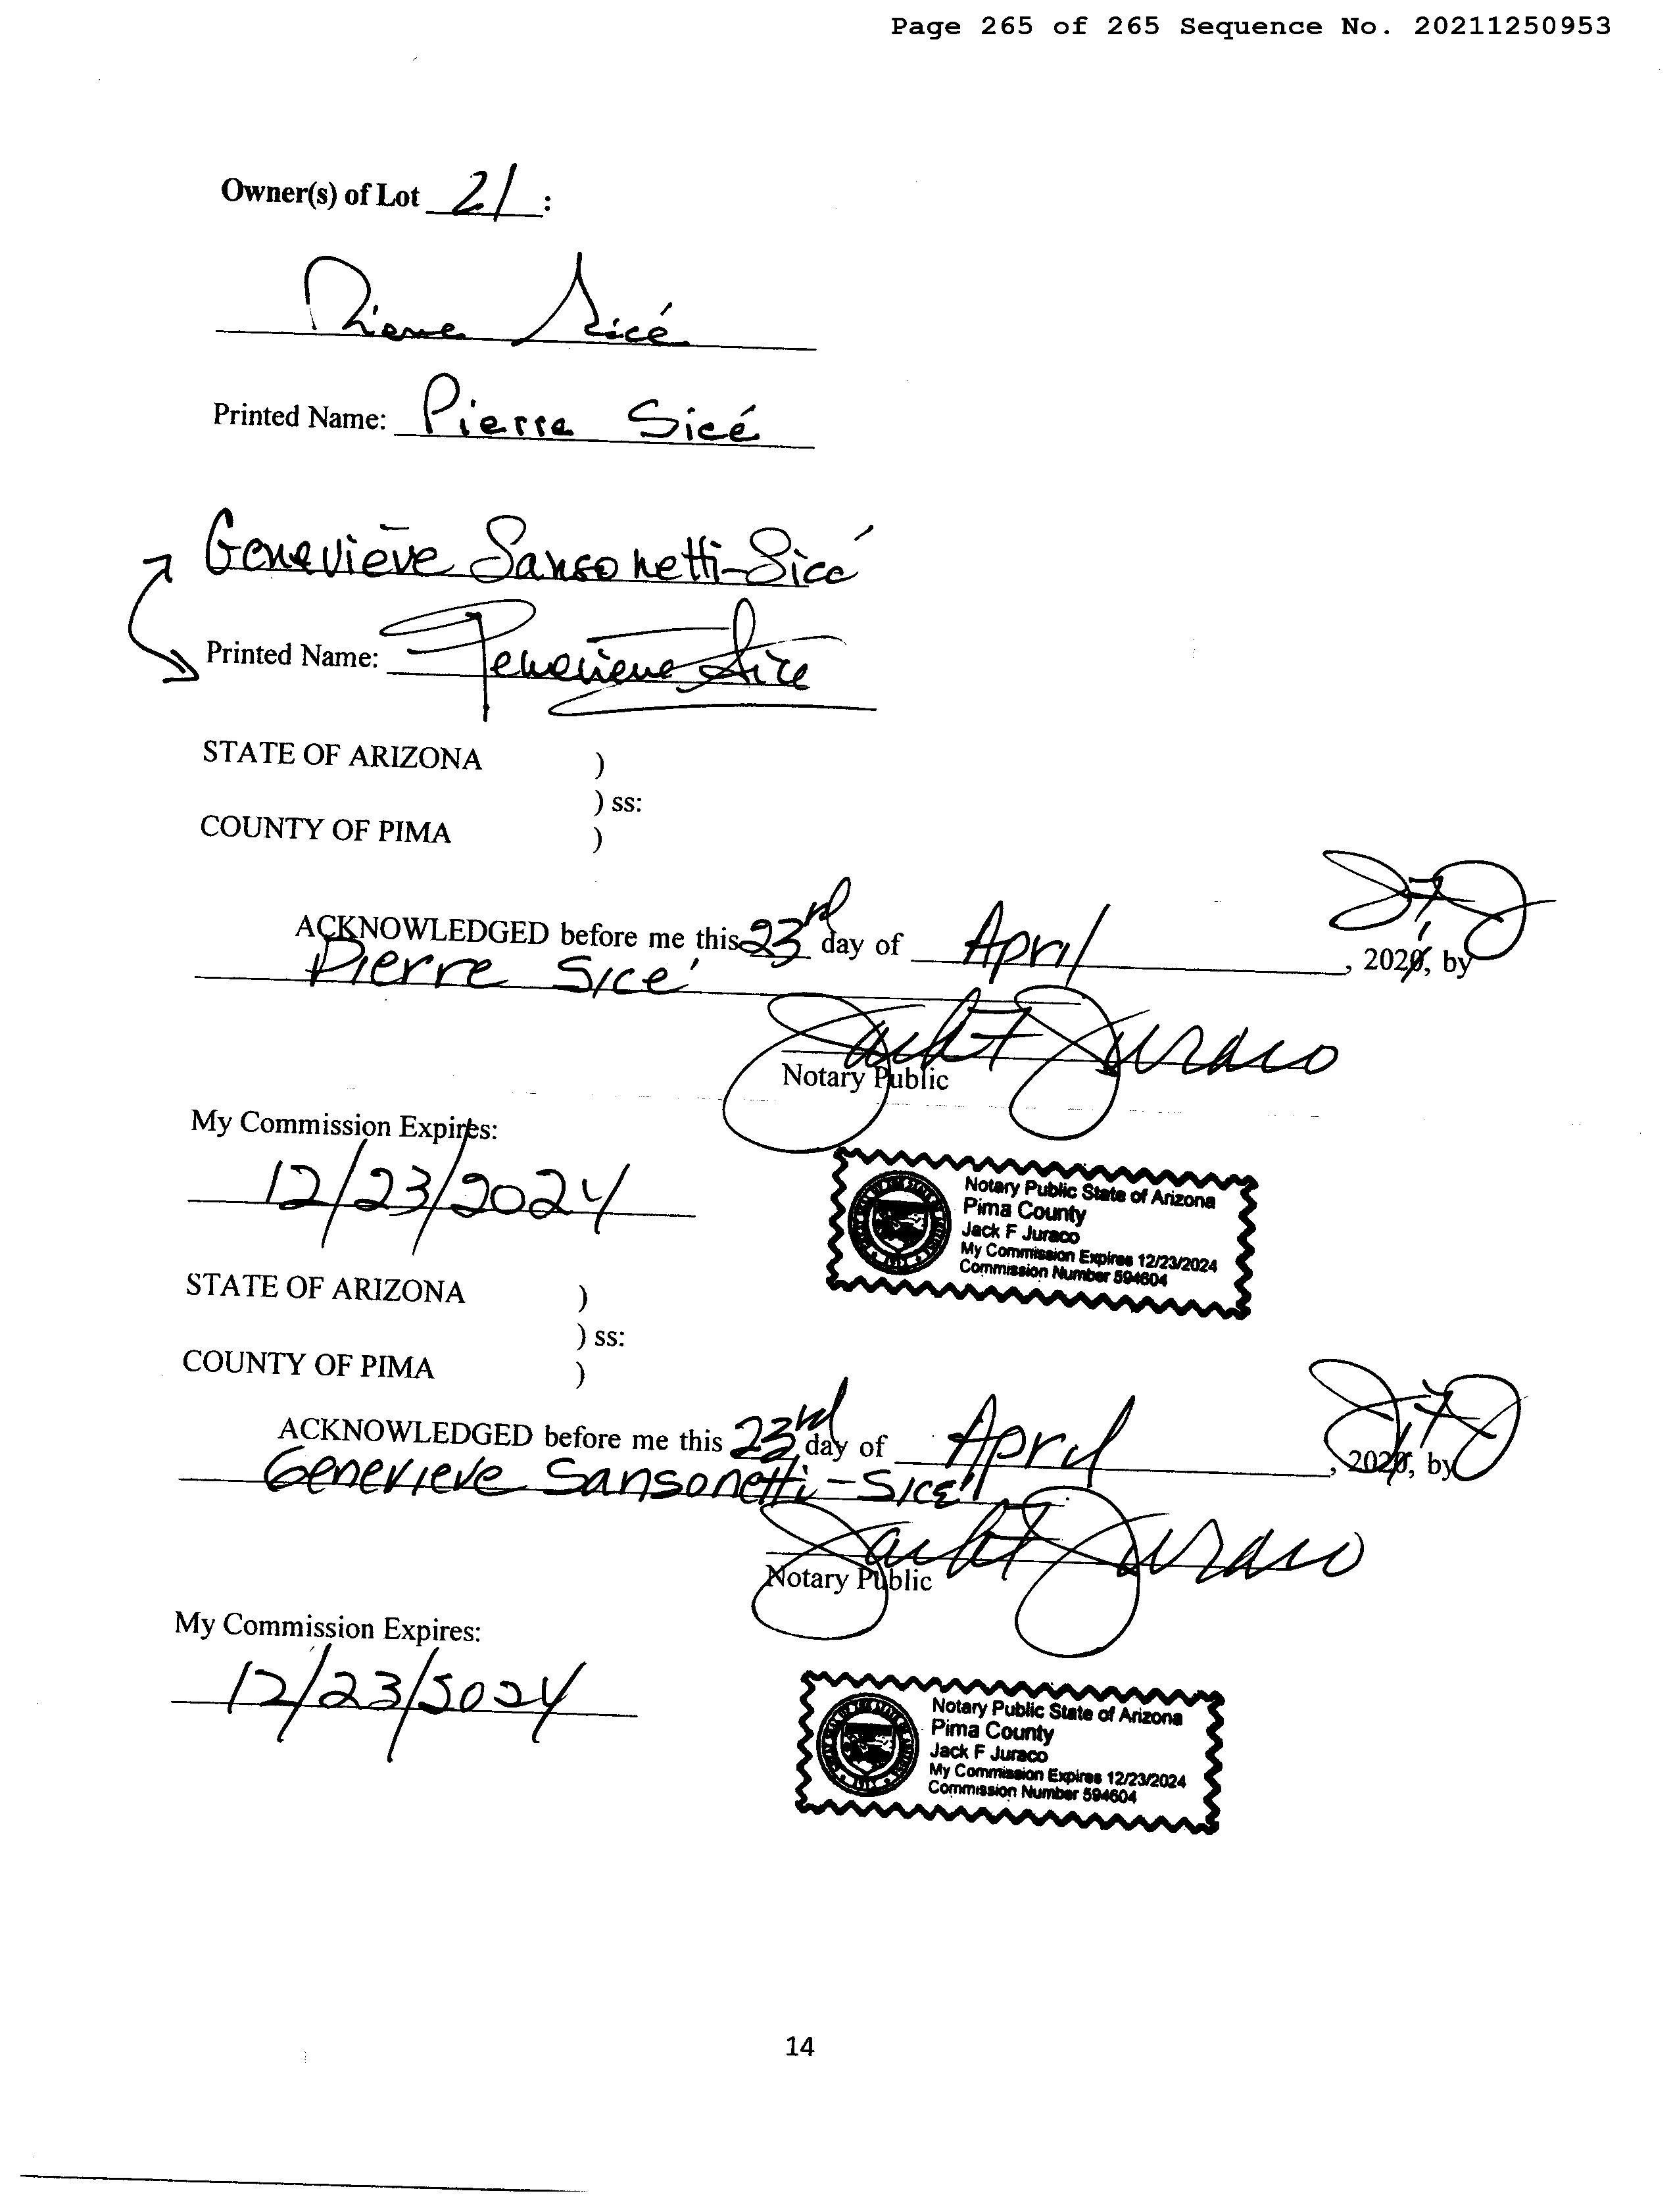 Page 265 of 265 Sequence No. 20211250953
Owner(s) of Lot 21 :
Pierre Sicé
Printed Name: Pierre Sicé
Geneviève Sansonetti-Sicé
Printed Name: Genevieve Sice
STATE OF ARIZONA )
) ss:
COUNTY OF PIMA )
ACKNOWLEDGED before me this 23rd day of April , 2020, by
Pierre Sicé
Jack F Juraco
Notary Public
My Commission Expires:
12/23/2024
Notary Public State of Arizona
Pima County
Jack F Juraco
My Commission Expires 12/23/2024
Commission Number 594604
STATE OF ARIZONA )
) ss:
COUNTY OF PIMA )
ACKNOWLEDGED before me this 23rd day of April , 2020, by
Genevieve Sansonetti-Sice'
Jack F Juraco
Notary Public
My Commission Expires:
12/23/2024
Notary Public State of Arizona
Pima County
Jack F Juraco
My Commission Expires 12/23/2024
Commission Number 594604
14